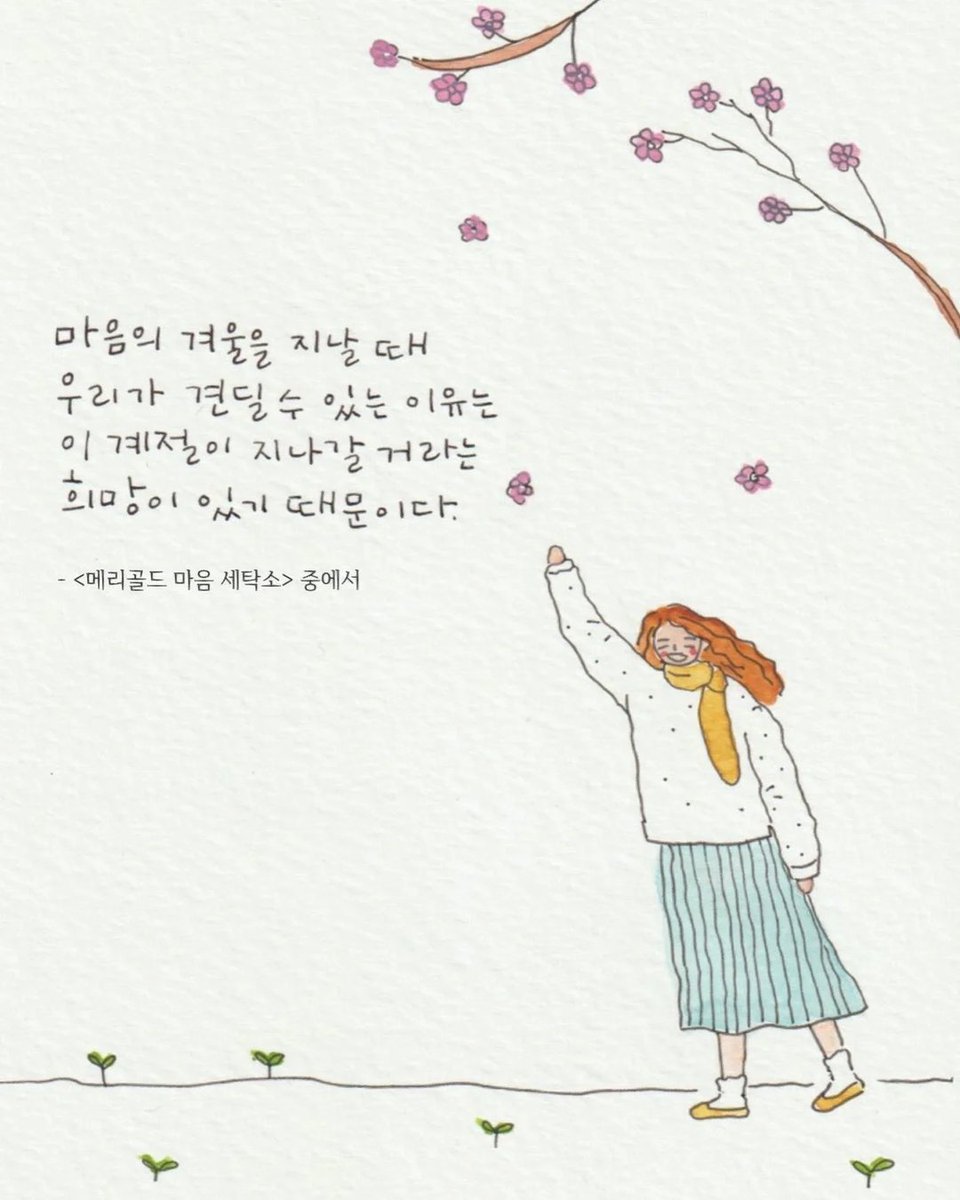 마음의 겨울을 지날 때
우리가 견딜 수 있는 이유는
이 계절이 지나갈 거라는
희망이 있기 때문이다.
- <메리골드 마음 세탁소> 중에서